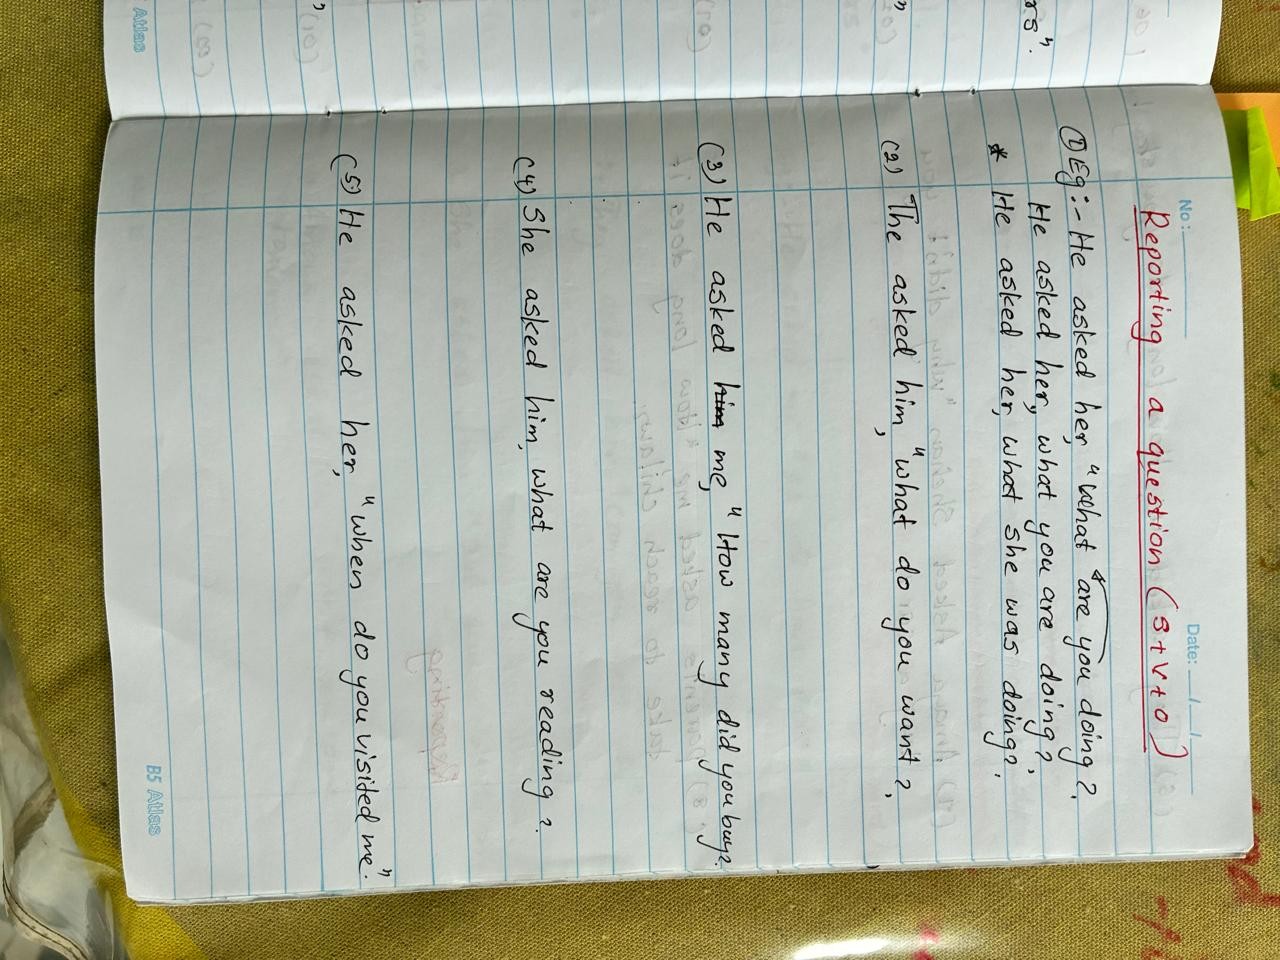 No: Date: _/_/_
Reporting a question (S+V+O)
① Eg:- He asked her, "what are you doing?
He asked her, what you are doing?
* He asked her, what she was doing?.
(2) The asked him, "what do you want?,
(3) He asked him me, "How many did you buy?
(4) She asked him, what are you reading?
(5) He asked her, "when do you visited me".
B5 Atlas
Atlas
rs".